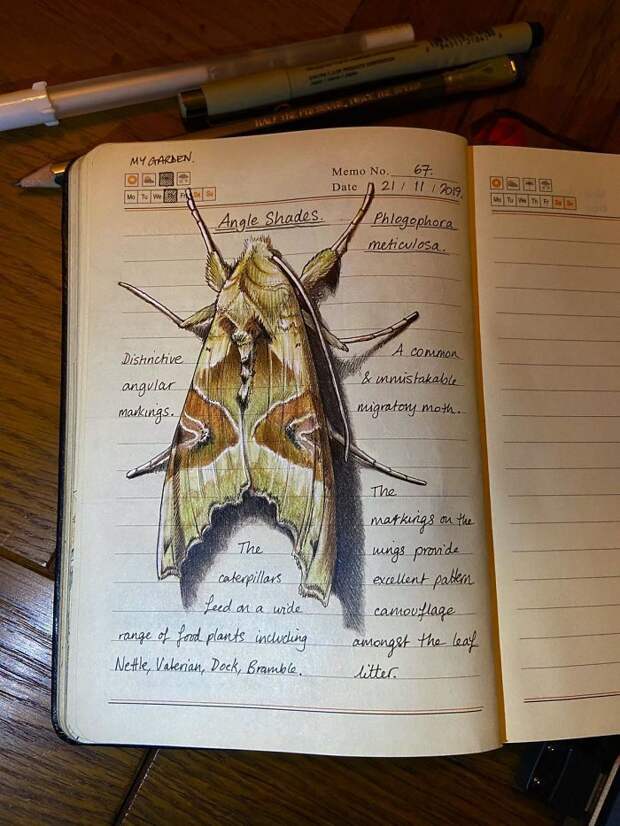 MY GARDEN.
Memo No. 67.
Date 21 / 11 / 2019.
Mo Tu We Fr Sa Su
Mo Tu We Th Fr Sa Su
Angle Shades.
Phlogophora
meticulosa.
Distinctive
angular
markings.
A common
& unmistakable
migratory moth.
The
markings on the
wings provide
excellent pattern
camouflage
amongst the leaf
litter.
The
caterpillars
feed on a wide
range of food plants including
Nettle, Valerian, Dock, Bramble.